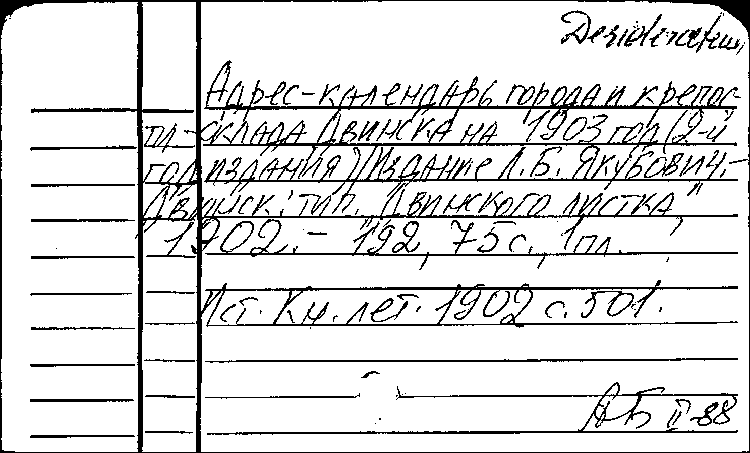 Desideratum
Адрес-календарь города и крепос-
ти-склада Двинска на 1903 год (2-й
год издания) / Издание Л.Б. Якубович.-
Двинск: тип. "Двинского листка",
1902. - 192, 75 с., 1 пл.
Ист. Кн. лет. 1902 с. 501.
АБ II-88